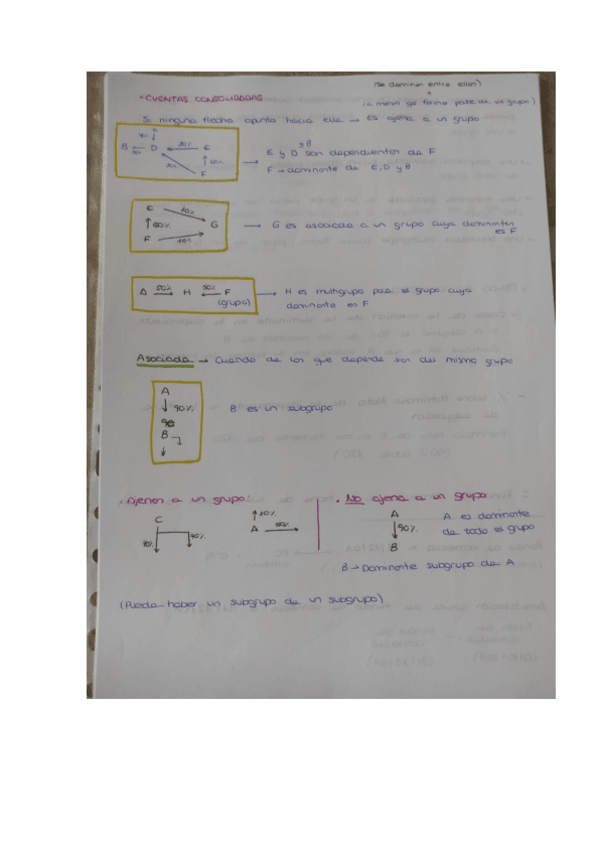 (Se dominan entre ellas)
• CUENTAS CONSOLIDADAS
(a menos que forme parte de un grupo)
Si ninguna flecha apunta hacia ella → es ajena a un grupo
B ← D ← E
F
80%
y B
E y D son dependientes de F
F → dominante de E, D y B
E 20% G
↑ 60%
F
→ G es asociada a un grupo cuya dominante es F
A 50% → H ← 50% F
(grupo)
→ H es multigrupo para el grupo cuya
dominante es F
Asociada → Cuando de los que depende son del mismo grupo
A
↓ 90%
B
↓
B es un subgrupo
• Ajenos a un grupo:
C
90%
A
• No ajena a un grupo
A
↓ 90%
B
A es dominante
de todo el grupo
B → Dominante subgrupo de A
(Puede haber un subgrupo de un subgrupo)